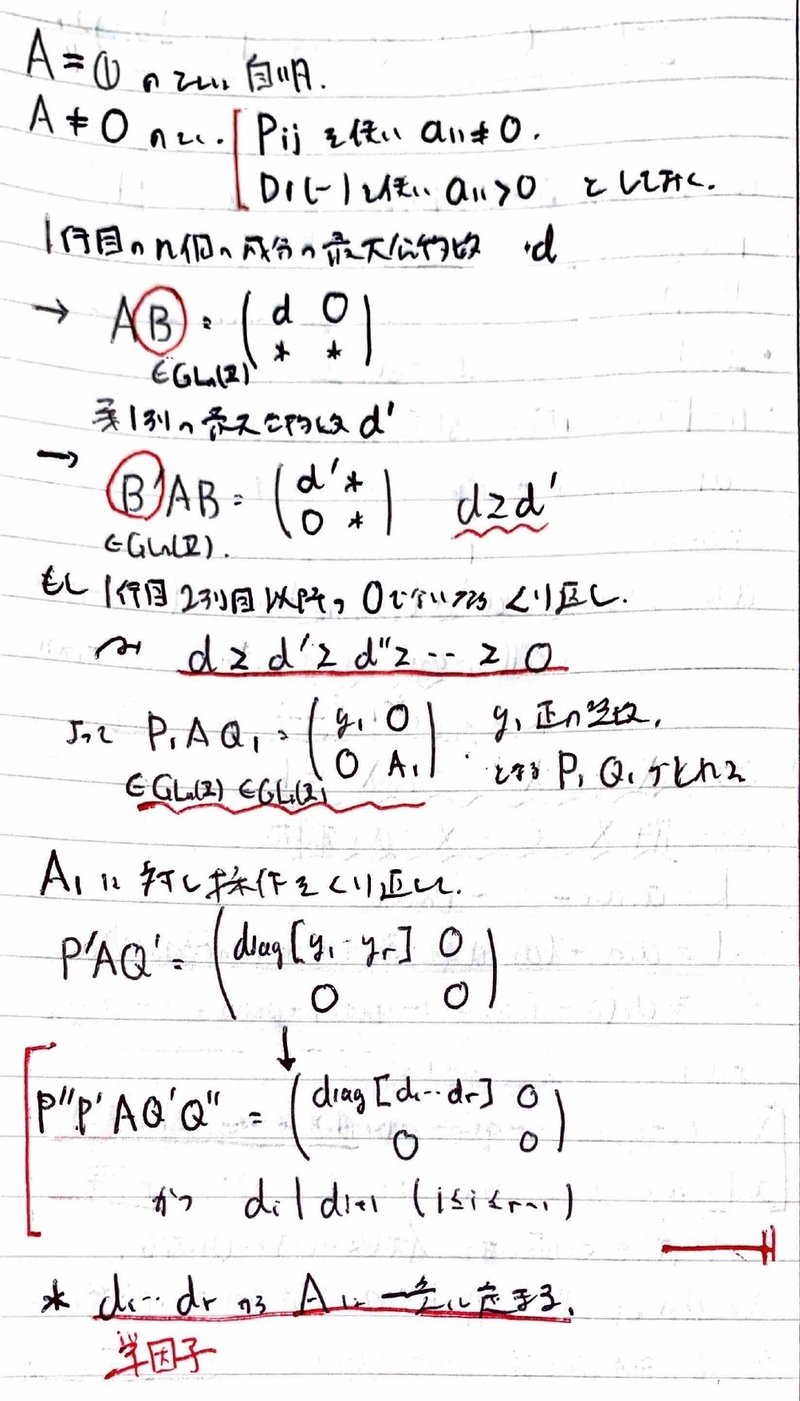 A = 0 のとき 自明.
A ≠ 0 のとき. Pij を使い a11 ≠ 0.
D1(-1) を使い a11 > 0 としておく.
1行目のn個の成分の最大公約数 d
→ AB = ( d 0 )
( * * )
∈GLn(Z)
第1列の最大公約数 d'
→ B'AB = ( d' * ) d ≥ d'
( 0 * )
∈GLn(Z).
もし 1行目 2列目以降が 0でないなら くり返し.
d ≥ d' ≥ d'' ≥ ‥ ≥ 0
よって P1AQ1 = ( y1 0 ) y1 正の整数,
( 0 A1 ) となる P1 Q1 がとれる
∈GLn(Z) ∈GLn(Z)
A1 に対し操作をくり返して.
P'AQ' = ( diag[y1‥yr] 0 )
( 0 0 )
↓
P''P'AQ'Q'' = ( diag[d1‥dr] 0 )
( 0 0 )
かつ di | di+1 (1≤i≤r-1)
* d1‥dr は A に一意に定まる.
単因子